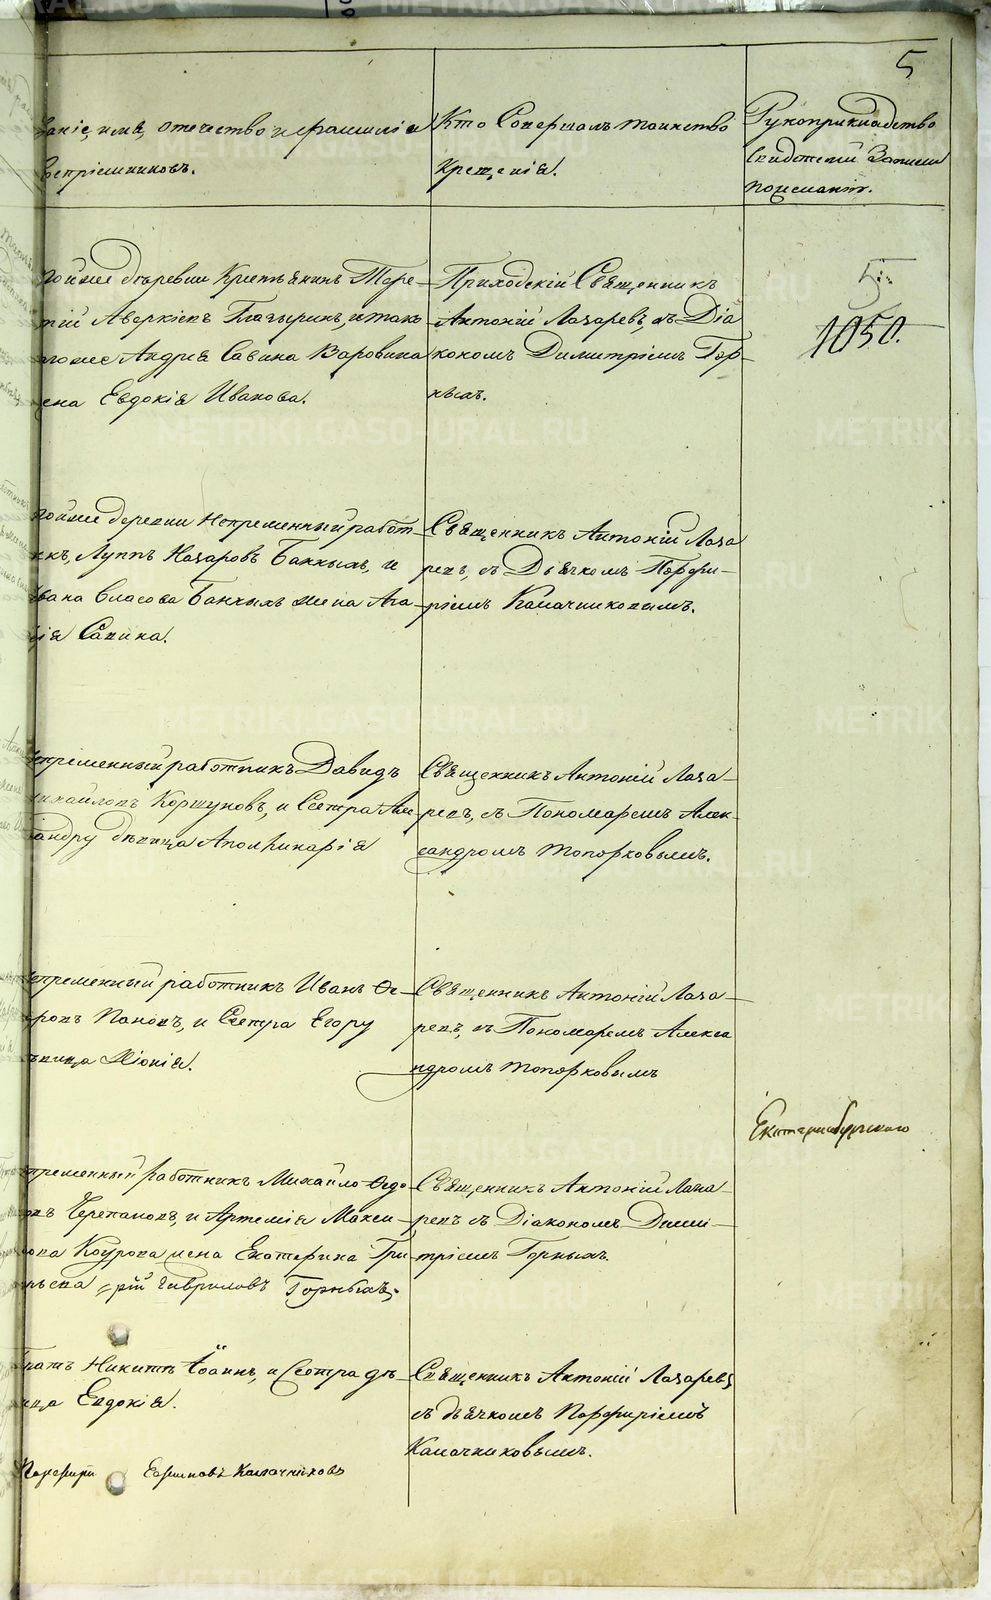 5
Званіе, имя, отечество и фамилія
воспріемниковъ.
Кто Совершалъ таинство
крещенія.
Рукоприкладство
свидѣтелей Записи
пожеланію.
тойже дѣревни Крестьянинъ Тере-
тій Аверкіевъ Глазыринъ, и тако
гоже Андрея Савина Варовина
жена Евдокія Иванова.
Приходскій Священникъ
Антоній Лазаревъ, съ Діа
кономъ Димитріемъ Гор-
ныхъ.
5
1050.
тойже деревни Непременный работ-
никъ, Луппъ Назаровъ Банныхъ, и
Ивана Власова Банныхъ жена Ага-
фія Савина.
Священникъ Антоній Лаза
ревъ, съ Дьячкомъ Порфи-
ріемъ Калачниковымъ.
непременный работникъ Давидъ
Михайловъ Коршуновъ, и Сестра Алек-
сандру дѣвица Аполинарія
Священникъ Антоній Лаза-
ревъ, съ Пономаремъ Алек-
сандромъ Топорковымъ.
непременный работникъ Иванъ Ѳе-
доровъ Пановъ, и Сестра Егору
дѣвица Хіонія.
Священникъ Антоній Лаза-
ревъ, съ Пономаремъ Алекса
ндромъ Топорковымъ
Екатеринбургскаго
непременный работникъ Михайло Ѳедо-
ровъ Черепановъ, и Артемія Макси-
мова Коурова жена Екатерина Гри-
горьева рій Гавриловъ Горныхъ.
Священникъ Антоній Лаза-
ревъ съ Діакономъ Дими-
тріемъ Горныхъ.
братъ Никитѣ Іоаннъ, и Сестра дѣ-
вица Евдокія.
Священникъ Антоній Лазаревъ
съ дьячкомъ Порфиріемъ
Калачниковымъ.
Порфирій Ефимовъ Калачниковъ
METRIKI.GASO-URAL.RU